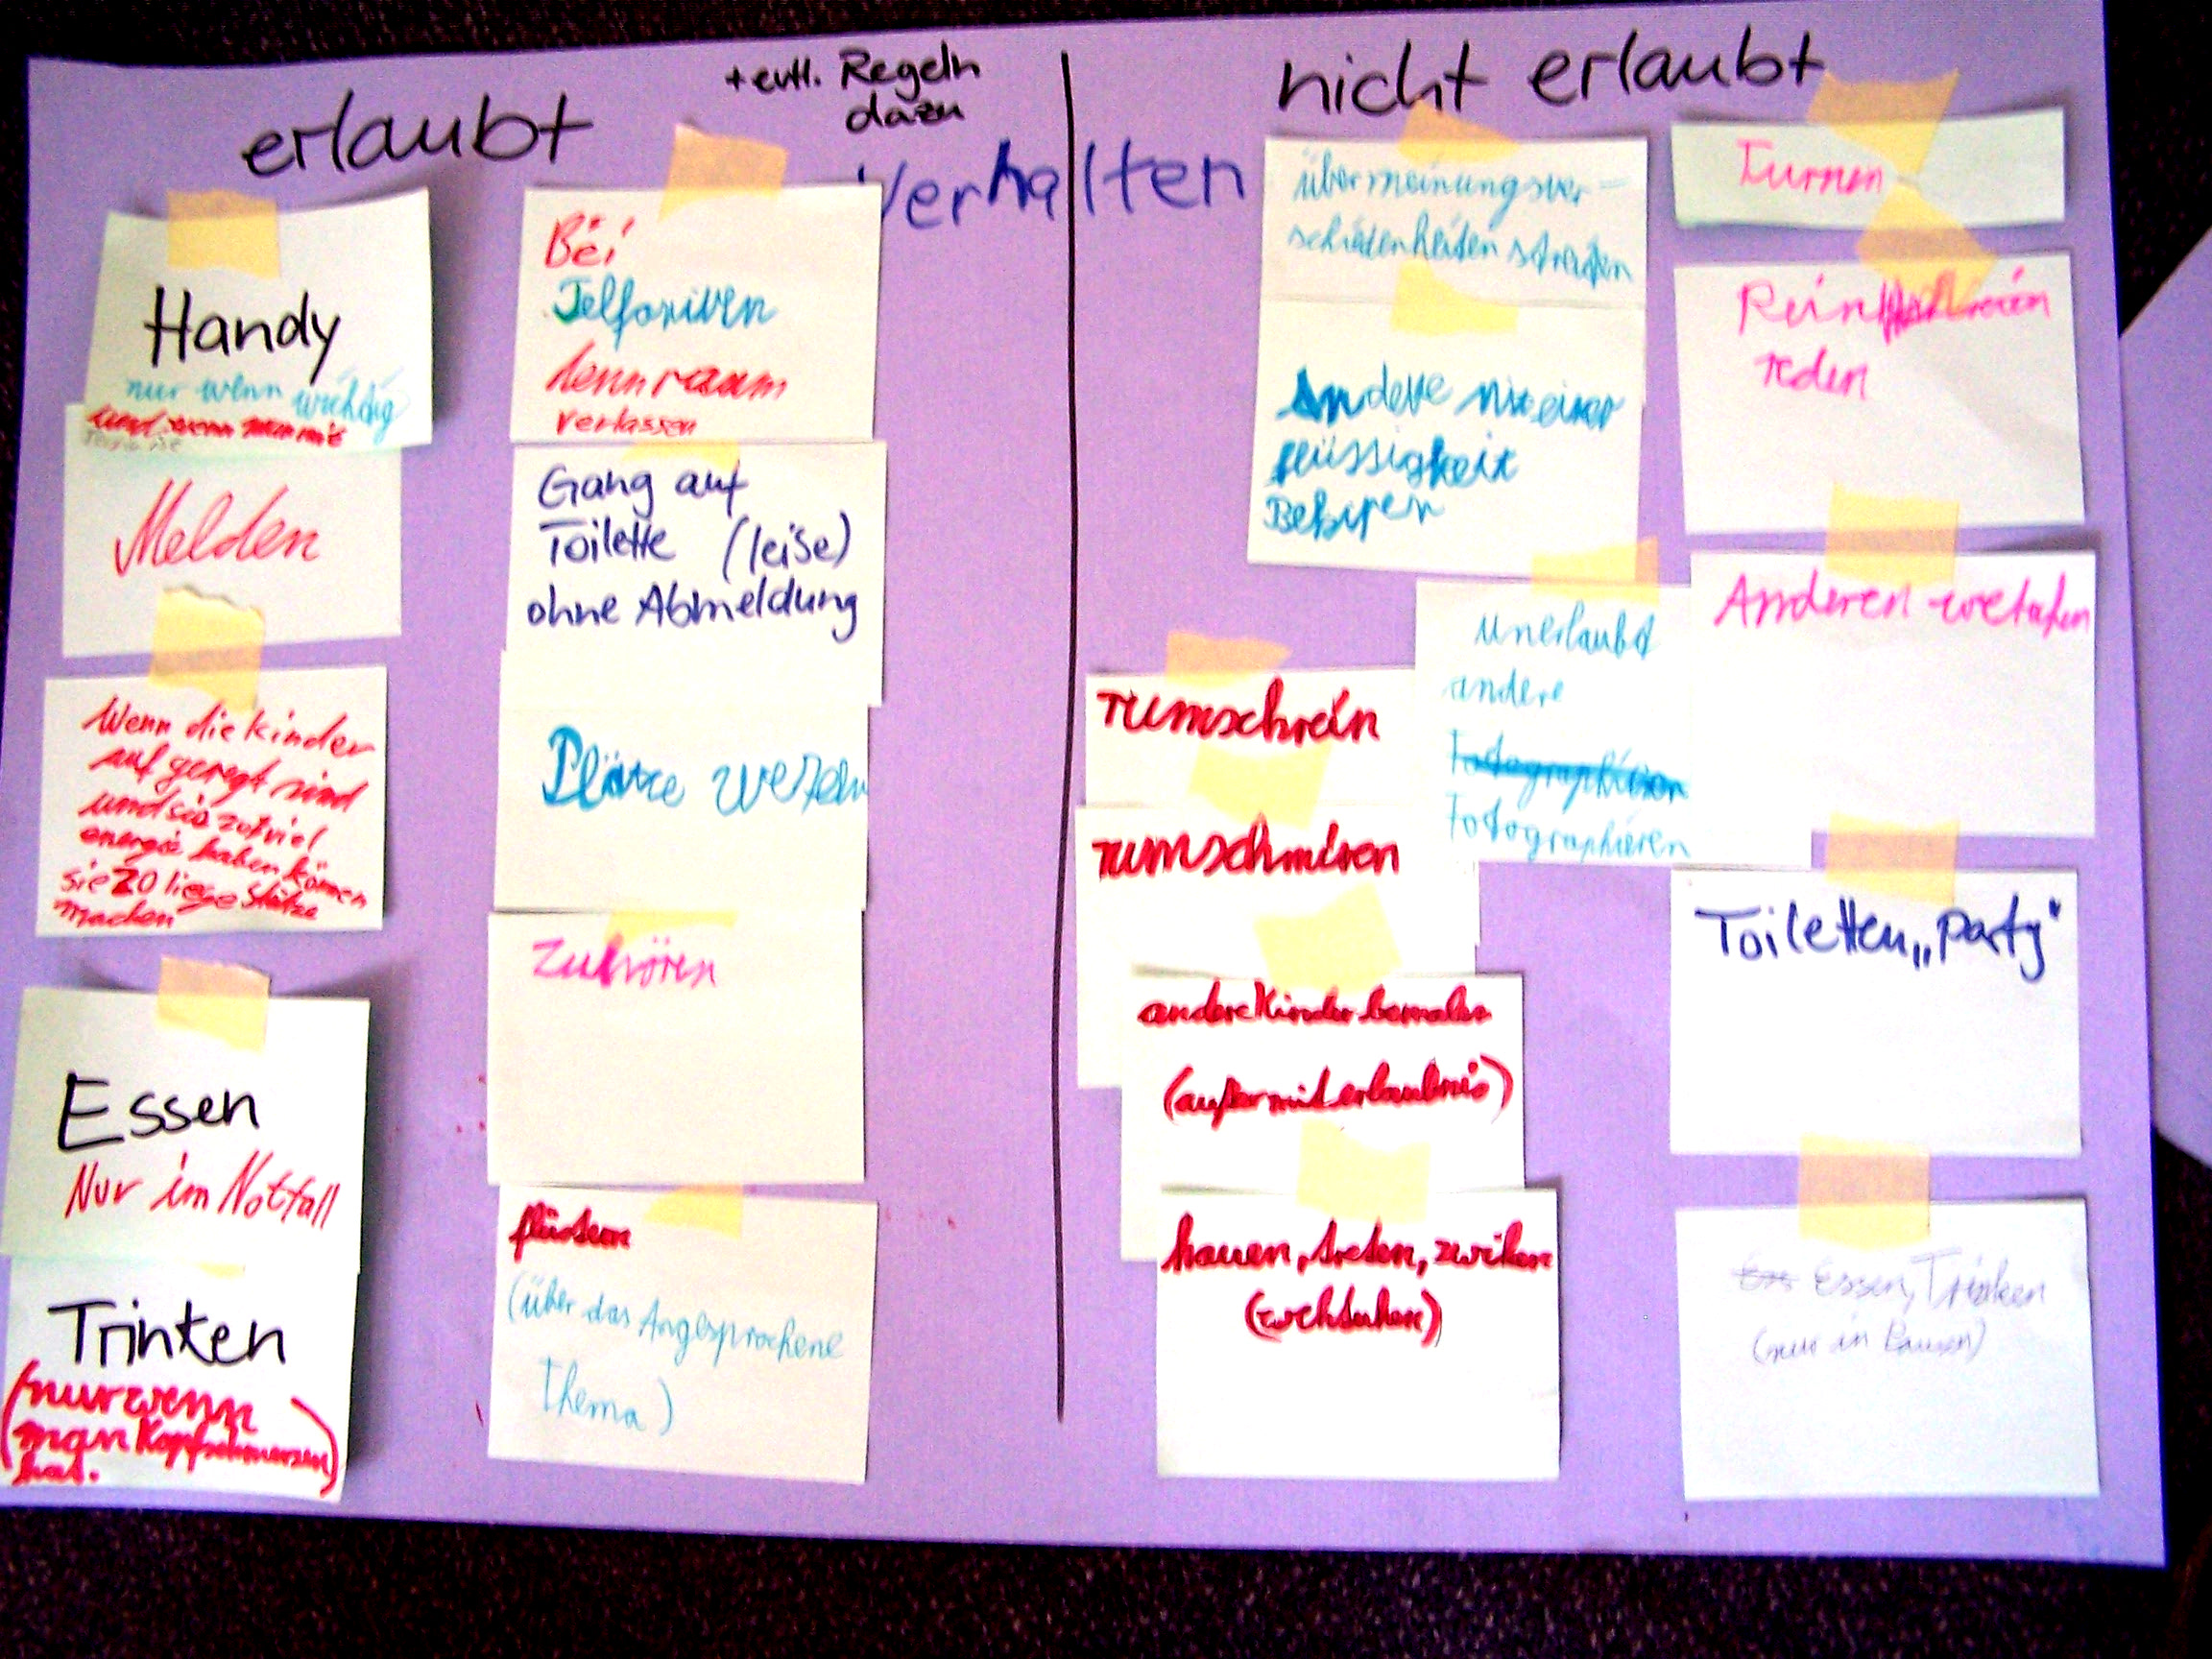 erlaubt
+ evtl. Regeln
dazu
nicht erlaubt
Verhalten
Handy
nur wenn wichtig
und wenn man mit
Melden
Wenn die kinder
auf geregt sind
und sie zu viel
energie haben können
sie 20 liege Stütze
machen
Essen
Nur im Notfall
Trinken
(nur wenn
man Kopfschmerzen
hat.)
Bei
Telfoniren
lernraum
verlassen
Gang auf
Toilette (leise)
ohne Abmeldung
Plätze
Zuhören
flüstern
(über das Angesprochene
Thema)
über meinungsver-
schiedenheiden streiten
Andere mit einer
flüssigkeit
rumschrein
rumschmiren
andere Kinder bemalen
(außer mit erlaubnis)
hauen, treten, zwiken
(wehtuhen)
unerlaubt
andere
Fotographieren
Turnen
Rein
reden
Anderen wetuhen
Toiletten „party"
Essen, Trinken
(nur in Pausen)